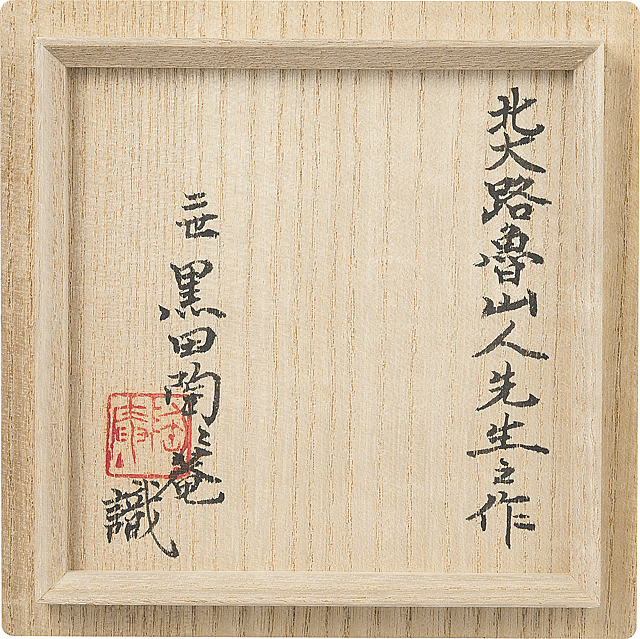 北大路魯山人先生之作
二世 黒田陶々菴
識